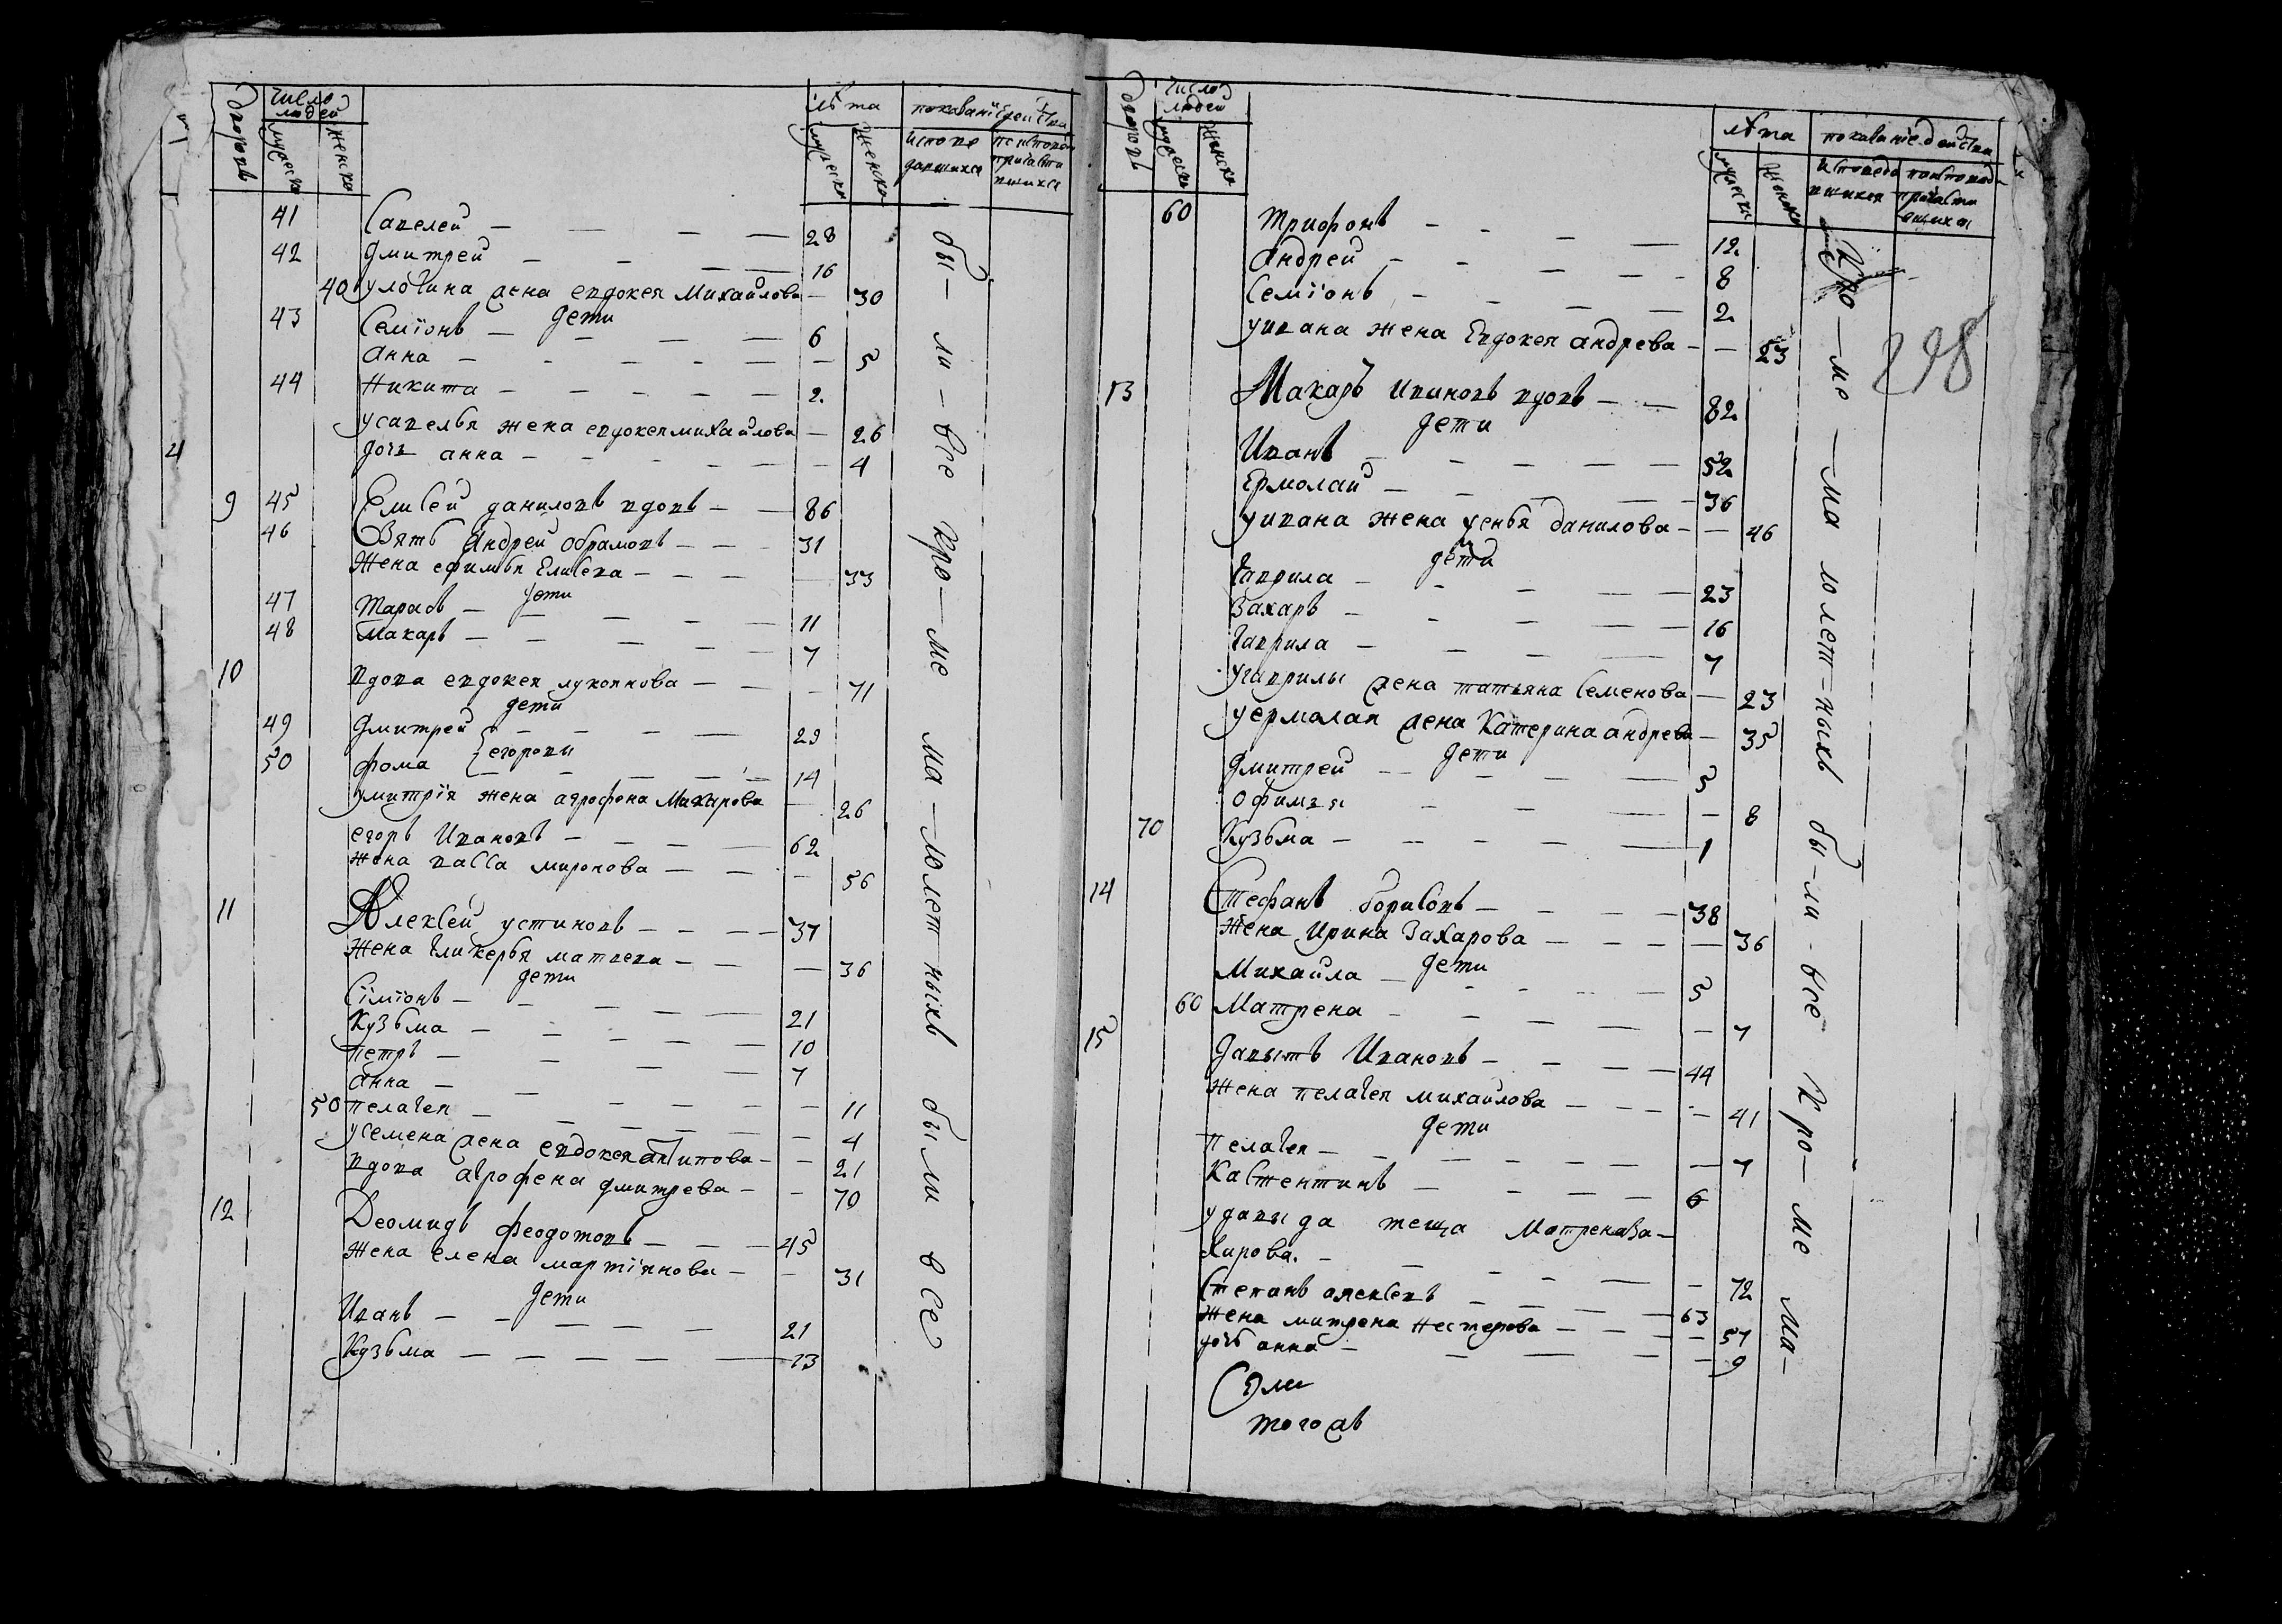 дворовъ число людей лѣта показанiе действа
мужеска женска мужеска женска исповедавшихся исповедавшихся причастившихся
41 Савелей 28
42 Дмитрей 16
40 жена евдокея Михайлова 30
дети
43 Семïонъ 6
Анна 5
44 Никита 2
усавелья жена евдокея михайлова 26
дочь анна 4
9 45 Елисей даниловъ вдовъ 86
46 Зять Андрей абрамовъ 31
Жена ефимья Елисева 33
дети
47 Тарасъ 11
48 Макаръ 7
10 вдова евдокея лукоянова 71
дети
49 Дмитрей 29
егоровы
50 фома 14
удмитрïя жена агрофена Макарова 26
егоръ Ивановъ 62
жена васса миронова 56
11 Алексей устиновъ 37
Жена гликерья матвева 36
дети
Сïмïонъ 21
Кузьма 10
петръ 7
Анна 11
50 пелагея 4
усемена жена евдокея антипова 21
вдова агрофена дмитрева 70
12 Деомидъ феодотовъ 45
жена елена мартïянова 31
дети
Иванъ 21
Кузьма 13
бы-ли-все кро-ме ма-лолет-ныхъ были все
дворовъ число людей лѣта показанïе действа
мужеска женска мужеска женска исповедавшихся исповедавшихся причастившихся
60 Трифонъ 12
Андрей 8
Семïонъ 2
уивана жена Евдокея андрева 23
13 Макаръ ивановъ вдовъ 82
дети
Иванъ 52
Ермолай 36
уивана жена данилова 46
дети
Гаврила 23
Захаръ 16
Гаврила 7
угаврилы жена татьяна семенова 23
уермолая жена Катерина андрева 35
дети
Дмитрей 5
Офимья 8
70 Кузьма 1
14 Стефанъ борисовъ 38
Жена Ирина Захарова 36
дети
Михайла 5
60 Матрена 7
15 Давытъ Ивановъ 44
Жена пелагея михайлова 41
дети
Пелагея 7
Костентинъ 6
удавыда теща Матрена За-
харова. 72
Степанъ алексевъ 63
Жена матрена нестерова 57
дочь анна 9
кро-ме-ма лолет-ныхъ бы-ли-все кро-ме ма-
298